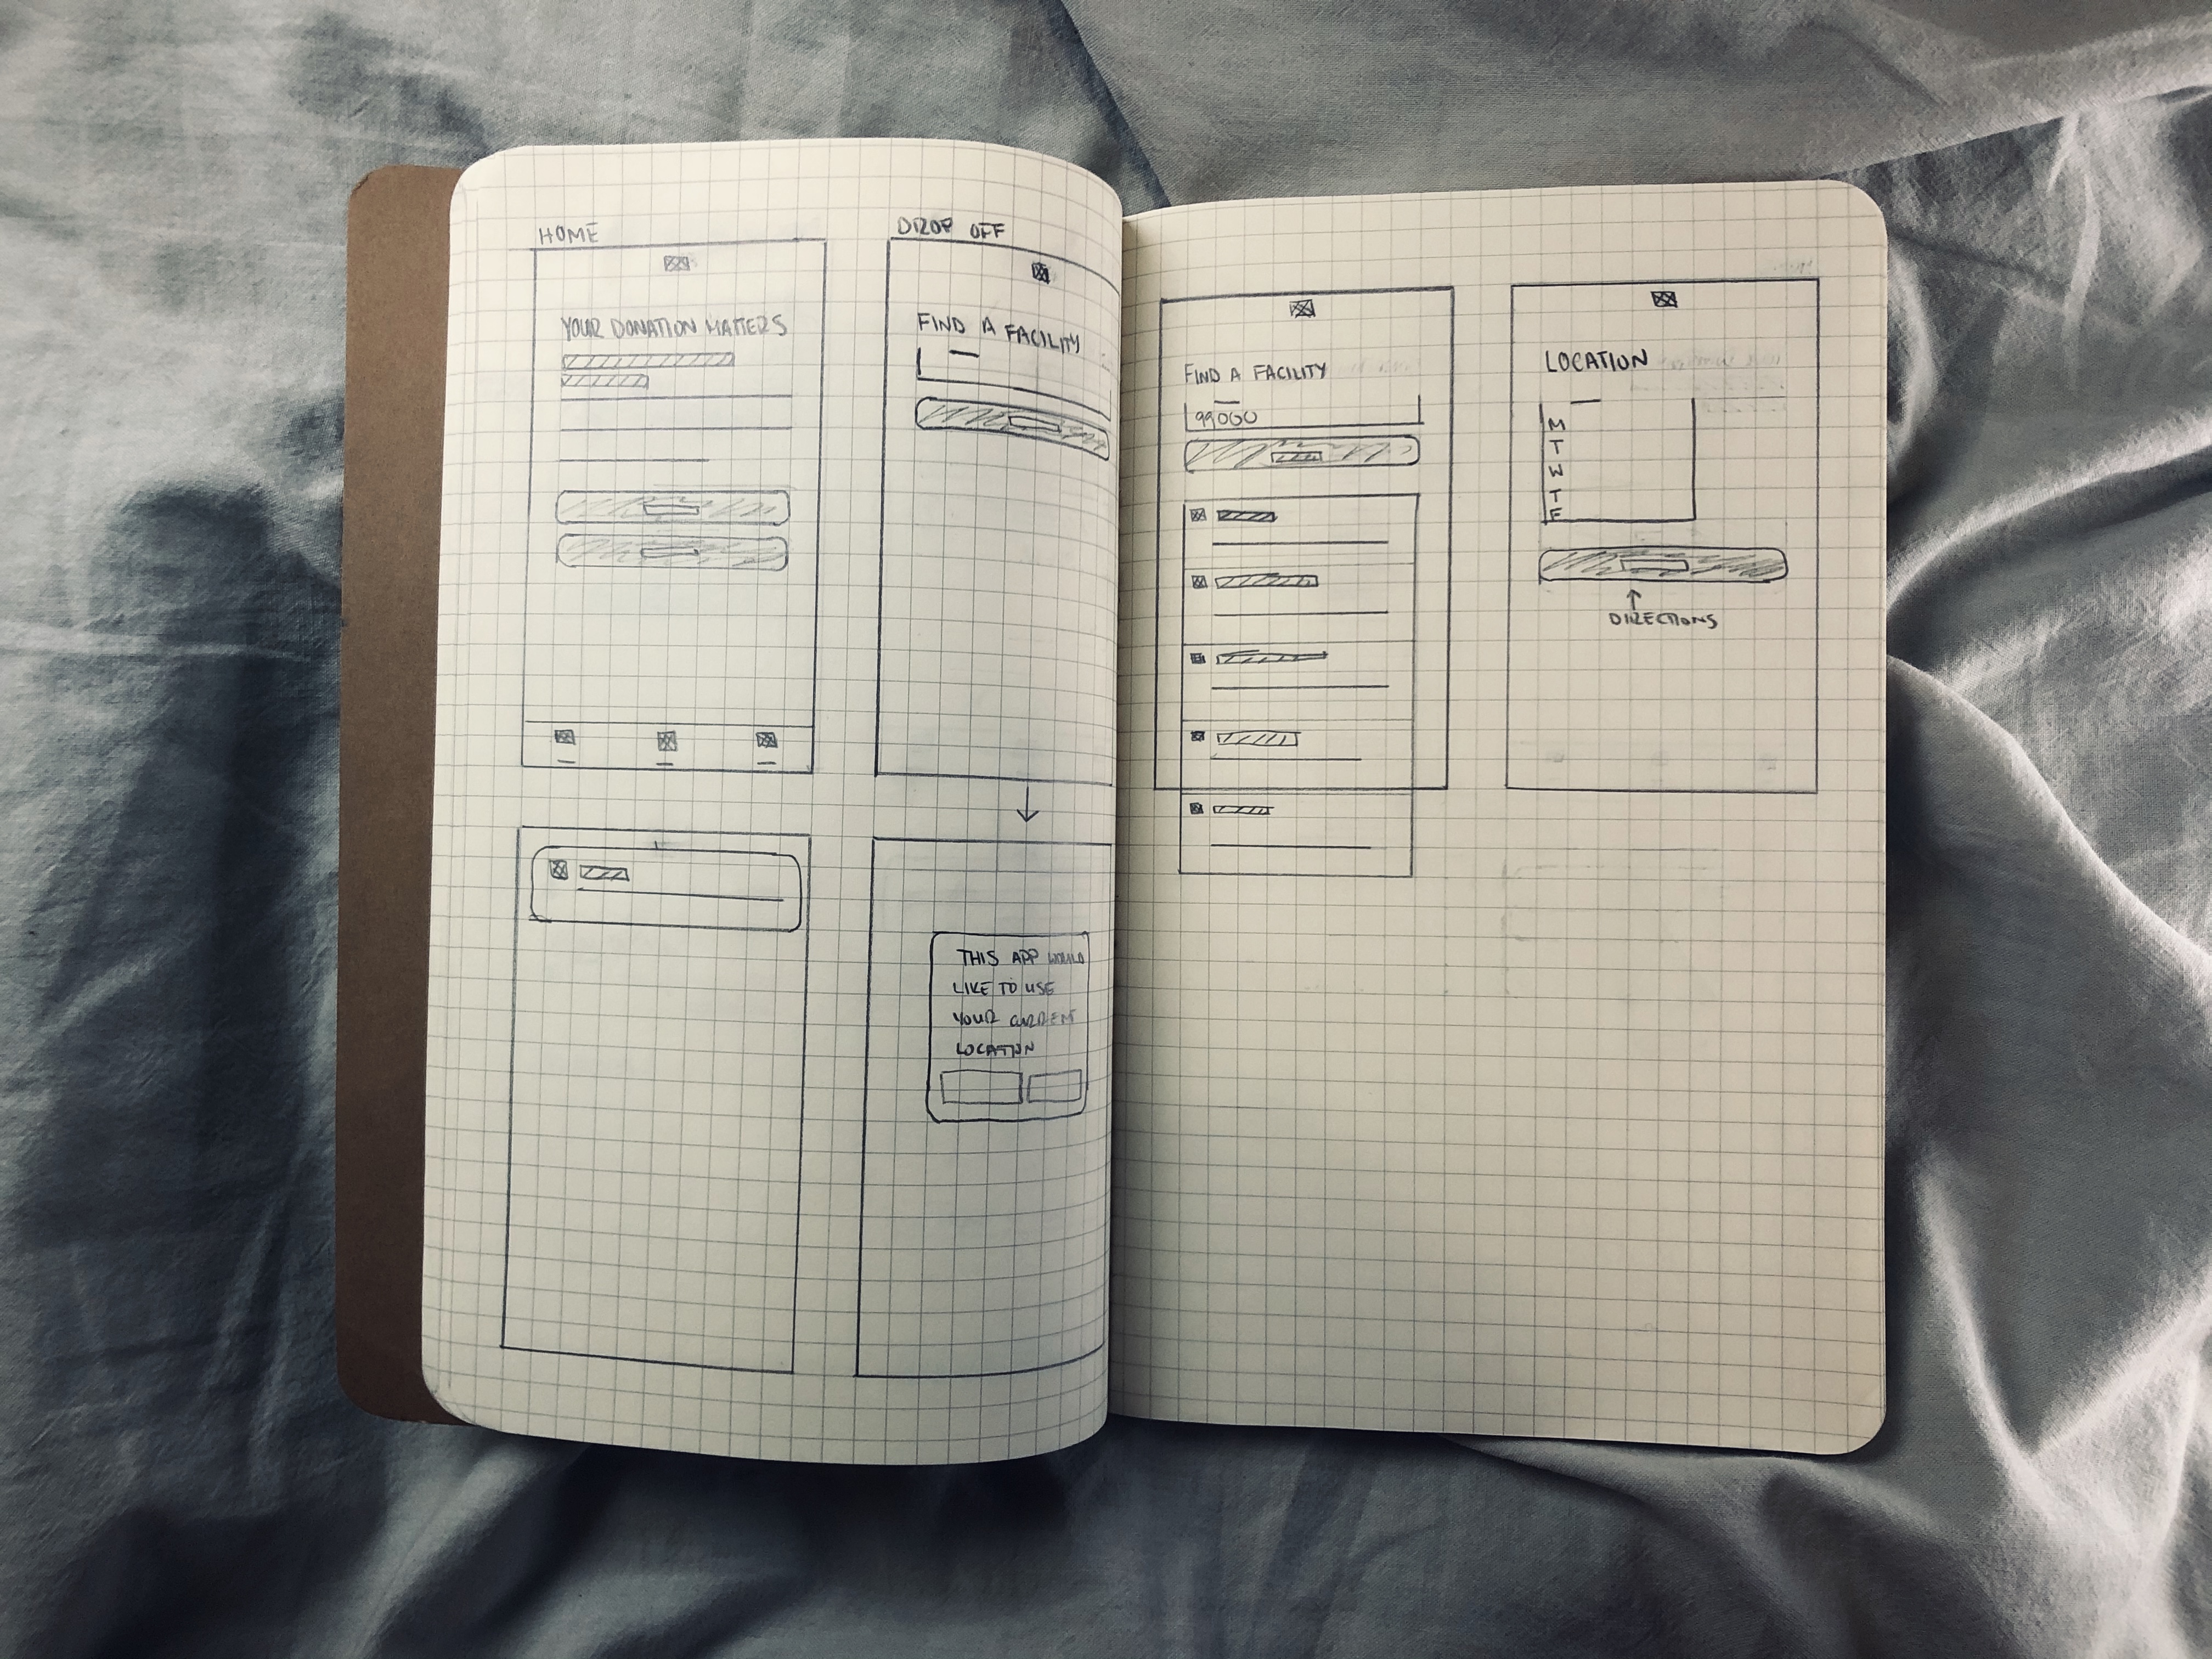 HOME
YOUR DONATION MATTERS
DROP OFF
FIND A FACILITY
THIS APP WOULD
LIKE TO USE
YOUR CURRENT
LOCATION
FIND A FACILITY
99000
LOCATION
M
T
W
T
F
DIRECTIONS